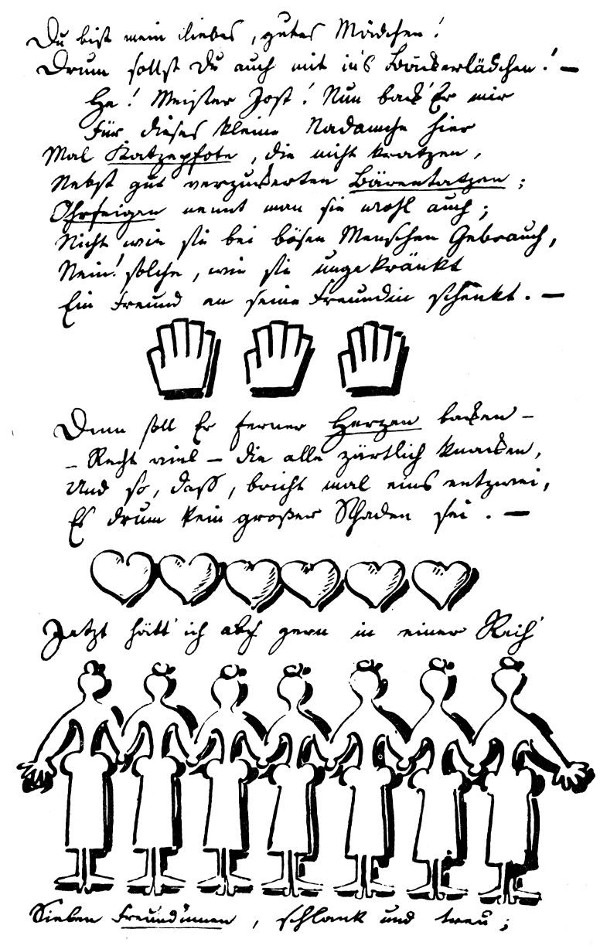 Du bist mein liebes, gutes Mädchen!
Drum sollst Du auch mit in's Bäckerlädchen! –
He! Meister Jost! Nun back' Er mir
Für dieses kleine Madamche hier
Mal Katzepfote, die nicht kratzen,
Nebst gut verzuckerten Bärentatzen;
Ohrfeigen nennt man sie wohl auch;
Nicht wie sie bei bösen Menschen Gebrauch,
Nein! solche, wie sie ungekränkt
Ein Freund an seine Freundin schenkt. –
Dann soll Er ferner Herzen backen –
– Recht viel – die alle zärtlich knacken,
Und so, daß, bricht mal eins entzwei,
Es drum kein großer Schaden sei. –
Jetzt hätt' ich auch gern in einer Reih'
Sieben Freundinnen, schlank und treu;